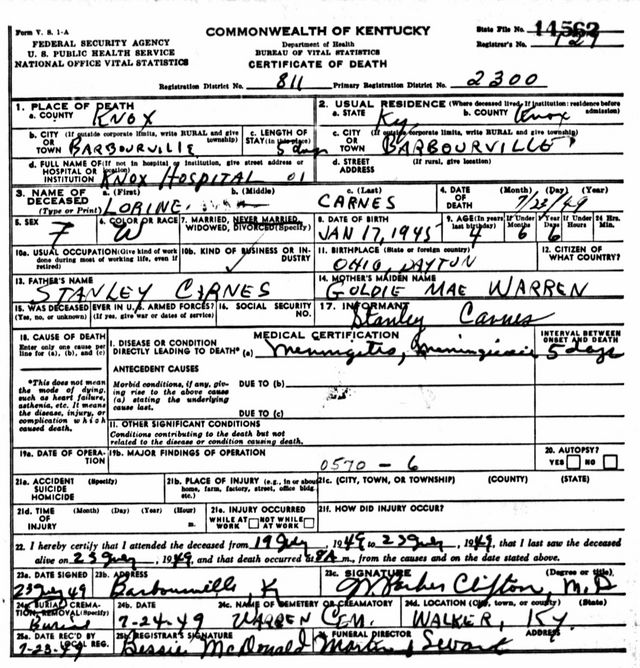 Form V. S. 1-A
COMMONWEALTH OF KENTUCKY
State File No. 14562
FEDERAL SECURITY AGENCY
Department of Health
Registrar's No. 127
U. S. PUBLIC HEALTH SERVICE
BUREAU OF VITAL STATISTICS
NATIONAL OFFICE VITAL STATISTICS
CERTIFICATE OF DEATH
Registration District No. 811 Primary Registration District No. 2300
1. PLACE OF DEATH
a. COUNTY KNOX
2. USUAL RESIDENCE (Where deceased lived. If institution: residence before admission)
a. STATE Ky b. COUNTY Knox
b. CITY (If outside corporate limits, write RURAL and give township) OR TOWN BARBOURVILLE
c. LENGTH OF STAY (in this place) 5 days
c. CITY (If outside corporate limits, write RURAL and give township) OR TOWN BARBOURVILLE
d. FULL NAME OF (If not in hospital or institution, give street address or location) HOSPITAL OR INSTITUTION KNOX HOSPITAL 01
d. STREET ADDRESS (If rural, give location)
3. NAME OF DECEASED (Type or Print)
a. (First) LORINE
b. (Middle)
c. (Last) CARNES
4. DATE OF DEATH (Month) (Day) (Year) 7/23/49
5. SEX F
6. COLOR OR RACE W
7. MARRIED, NEVER MARRIED, WIDOWED, DIVORCED (Specify)
8. DATE OF BIRTH JAN 17, 1945
9. AGE (In years last birthday) 4
If Under 1 Year Months 6 Days 6
If Under 24 Hrs. Hours Min.
10a. USUAL OCCUPATION (Give kind of work done during most of working life, even if retired)
10b. KIND OF BUSINESS OR INDUSTRY
11. BIRTHPLACE (State or foreign country) OHIO, DAYTON
12. CITIZEN OF WHAT COUNTRY?
13. FATHER'S NAME
STANLEY CARNES
14. MOTHER'S MAIDEN NAME
GOLDIE MAE WARREN
15. WAS DECEASED EVER IN U.S. ARMED FORCES? (Yes, no, or unknown) (If yes, give war or dates of service)
16. SOCIAL SECURITY NO.
17. INFORMANT
Stanley Carnes
18. CAUSE OF DEATH
Enter only one cause per line for (a), (b), and (c)
MEDICAL CERTIFICATION
INTERVAL BETWEEN ONSET AND DEATH
I. DISEASE OR CONDITION DIRECTLY LEADING TO DEATH* (a) Meningitis, 5 days
*This does not mean the mode of dying, such as heart failure, asthenia, etc. It means the disease, injury, or complication which caused death.
ANTECEDENT CAUSES
Morbid conditions, if any, giving rise to the above cause (a) stating the underlying cause last.
DUE TO (b)
DUE TO (c)
II. OTHER SIGNIFICANT CONDITIONS
Conditions contributing to the death but not related to the disease or condition causing death.
19a. DATE OF OPERATION
19b. MAJOR FINDINGS OF OPERATION
0570 - 6
20. AUTOPSY?
YES NO
21a. ACCIDENT SUICIDE HOMICIDE (Specify)
21b. PLACE OF INJURY (e.g., in or about home, farm, factory, street, office bldg. etc.)
21c. (CITY, TOWN, OR TOWNSHIP) (COUNTY) (STATE)
21d. TIME OF INJURY (Month) (Day) (Year) (Hour) m.
21e. INJURY OCCURRED
WHILE AT WORK NOT WHILE AT WORK
21f. HOW DID INJURY OCCUR?
22. I hereby certify that I attended the deceased from 19 July, 1949, to 23 July, 1949, that I last saw the deceased
alive on 23 July, 1949, and that death occurred at 8A m., from the causes and on the date stated above.
23a. DATE SIGNED 23 July 49
23b. ADDRESS Barbourville, Ky
23c. SIGNATURE (Degree or title) Clifton, M.D
24a. BURIAL, CREMATION, REMOVAL (Specify) Burial
24b. DATE 7-24-49
24c. NAME OF CEMETERY OR CREAMATORY WARREN CEM.
24d. LOCATION (City, town, or county) (State) WALKER, KY.
25a. DATE REC'D BY LOCAL REG. 7-23-49
25b. REGISTRAR'S SIGNATURE Bessie McDonald
FUNERAL DIRECTOR ADDRESS